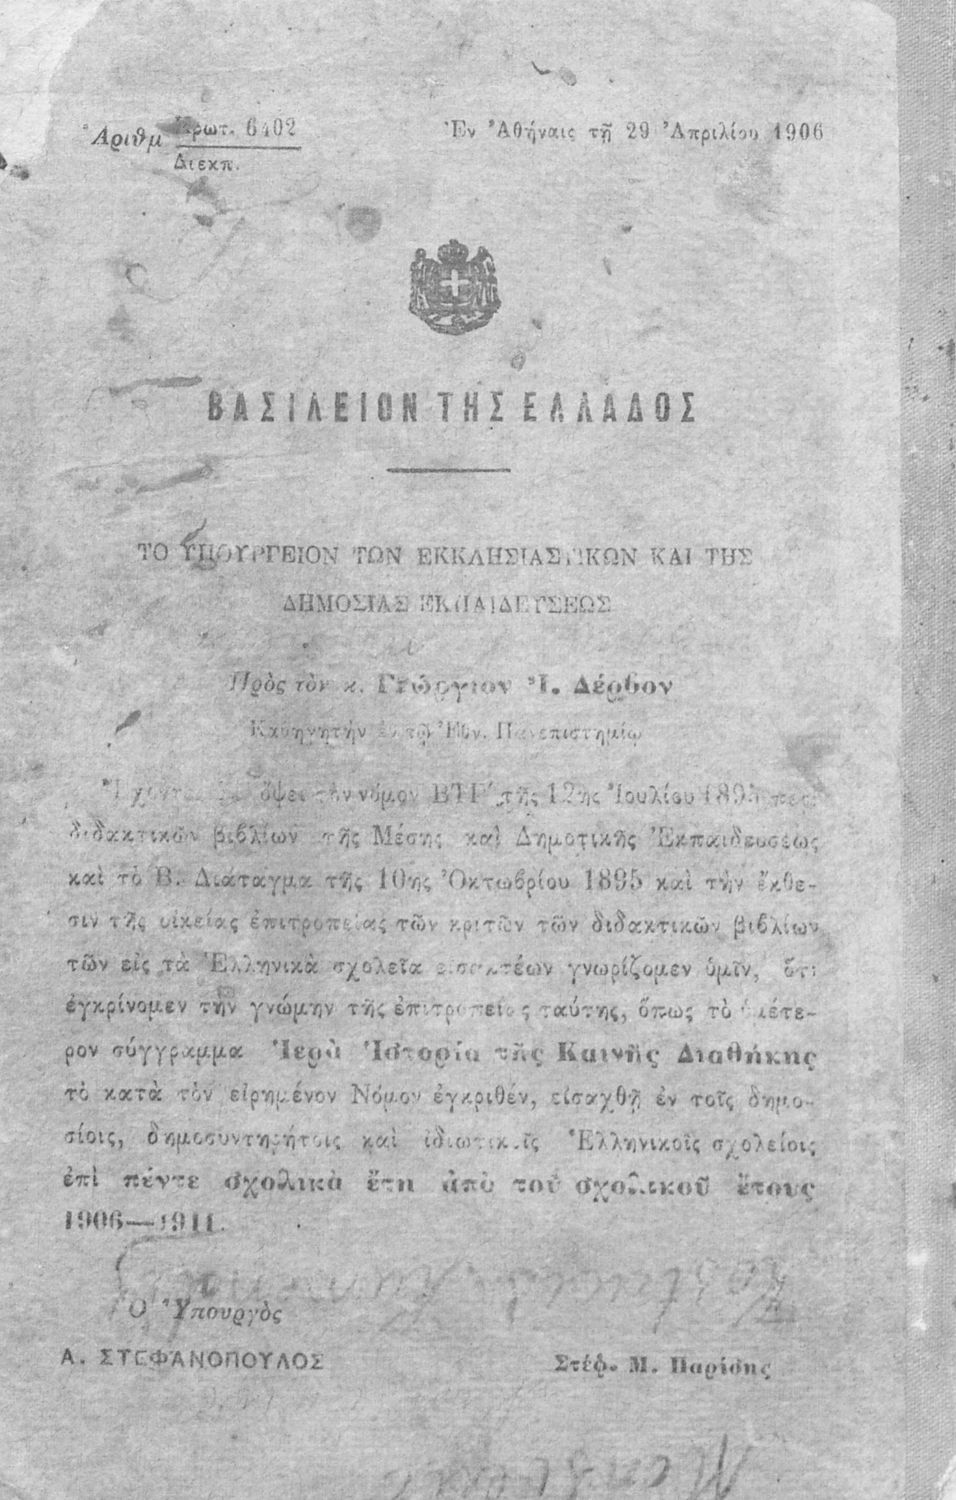 Ἀριθμ Πρωτ. 6402
Διεκπ.
Ἐν Ἀθήναις τῇ 29 Ἀπριλίου 1906
ΒΑΣΙΛΕΙΟΝ ΤΗΣ ΕΛΛΑΔΟΣ
ΤΟ ΥΠΟΥΡΓΕΙΟΝ ΤΩΝ ΕΚΚΛΗΣΙΑΣΤΙΚΩΝ ΚΑΙ ΤΗΣ
ΔΗΜΟΣΙΑΣ ΕΚΠΑΙΔΕΥΣΕΩΣ
Πρὸς τὸν κ. Γεώργιον Ἰ. Δέρβον
Καθηγητὴν ἐν τῷ Ἐθν. Πανεπιστημίῳ
Ἔχοντες ὑπ' ὄψει τὸν νόμον ΒΤΓʹ τῆς 12ης Ἰουλίου 1895 περὶ
διδακτικῶν βιβλίων τῆς Μέσης καὶ Δημοτικῆς Ἐκπαιδεύσεως
καὶ τὸ Β. Διάταγμα τῆς 10ης Ὀκτωβρίου 1895 καὶ τὴν ἔκθε-
σιν τῆς οἰκείας ἐπιτροπείας τῶν κριτῶν τῶν διδακτικῶν βιβλίων
τῶν εἰς τὰ Ἑλληνικὰ σχολεῖα εἰσακτέων γνωρίζομεν ὑμῖν, ὅτι
ἐγκρίνομεν τὴν γνώμην τῆς ἐπιτροπείας ταύτης, ὅπως τὸ ὑμέτε-
ρον σύγγραμμα Ἱερὰ Ἱστορία τῆς Καινῆς Διαθήκης
τὸ κατὰ τὸν εἰρημένον Νόμον ἐγκριθέν, εἰσαχθῇ ἐν τοῖς δημο-
σίοις, δημοσυντηρήτοις καὶ ἰδιωτικοῖς Ἑλληνικοῖς σχολείοις
ἐπὶ πέντε σχολικὰ ἔτη ἀπὸ τοῦ σχολικοῦ ἔτους
1906—1911.
Ὁ Ὑπουργὸς
Α. ΣΤΕΦΑΝΟΠΟΥΛΟΣ
Στέφ. Μ. Παρίσης